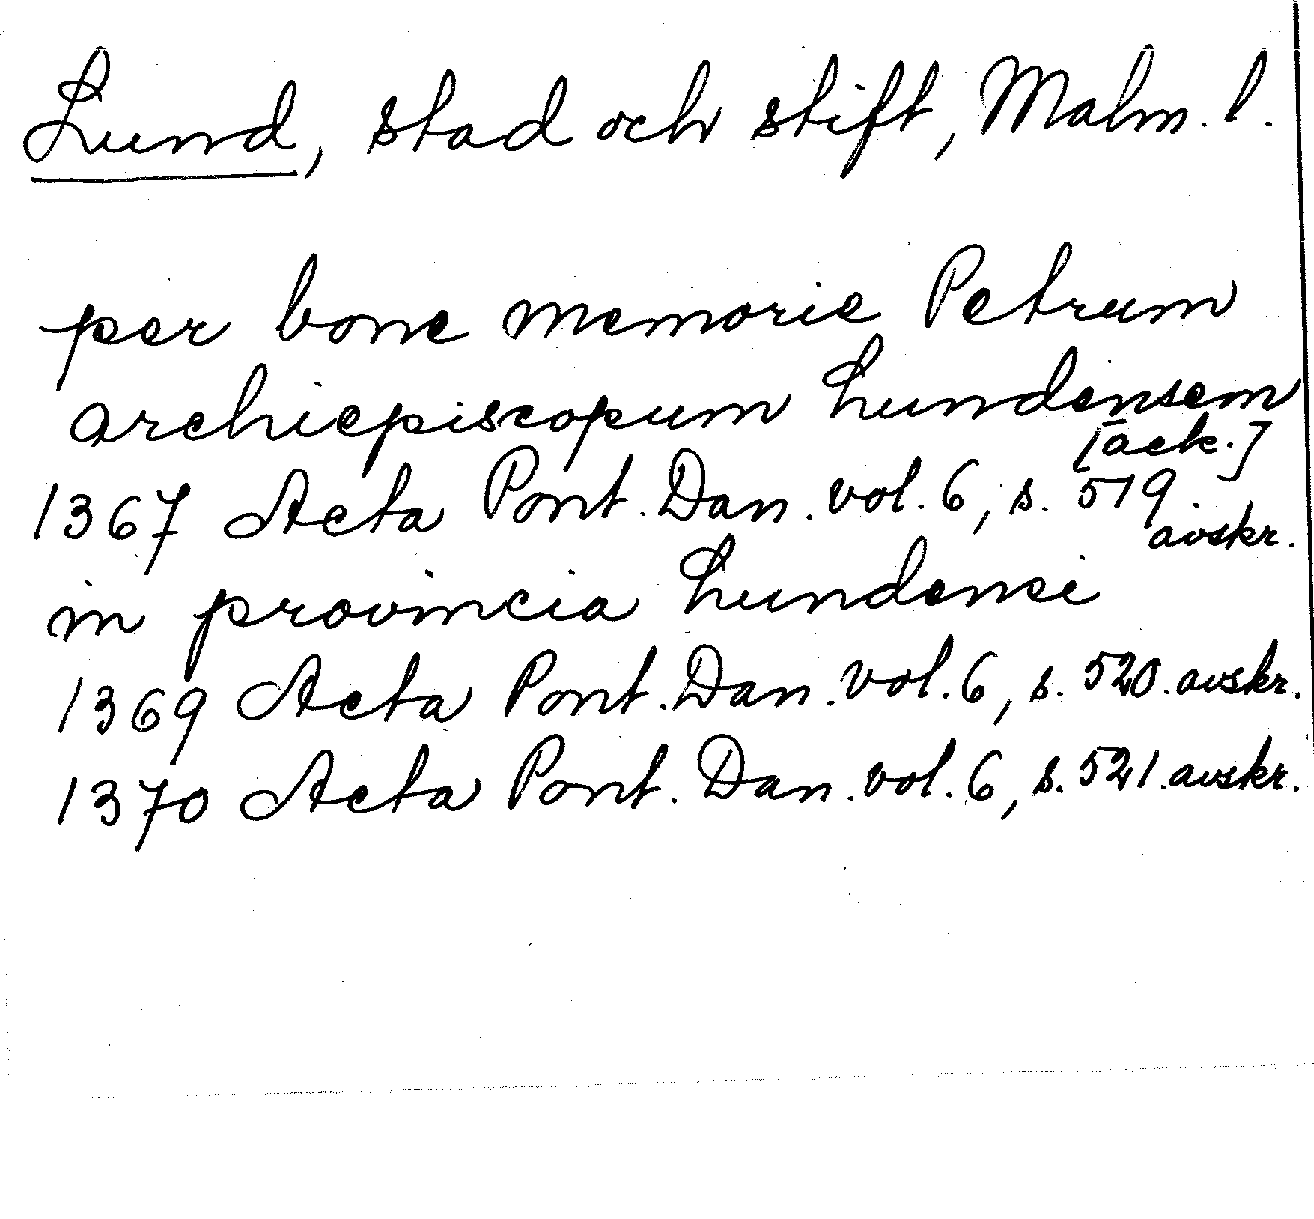 Lund, stad och stift, Malm. l.
per bone memorie Petrum
archiepiscopum Lundensem
[ack.]
1367 Acta Pont. Dan. vol. 6, s. 519.
avskr.
in provincia Lundensi
1369 Acta Pont. Dan. vol. 6, s. 520. avskr.
1370 Acta Pont. Dan. vol. 6, s. 521. avskr.